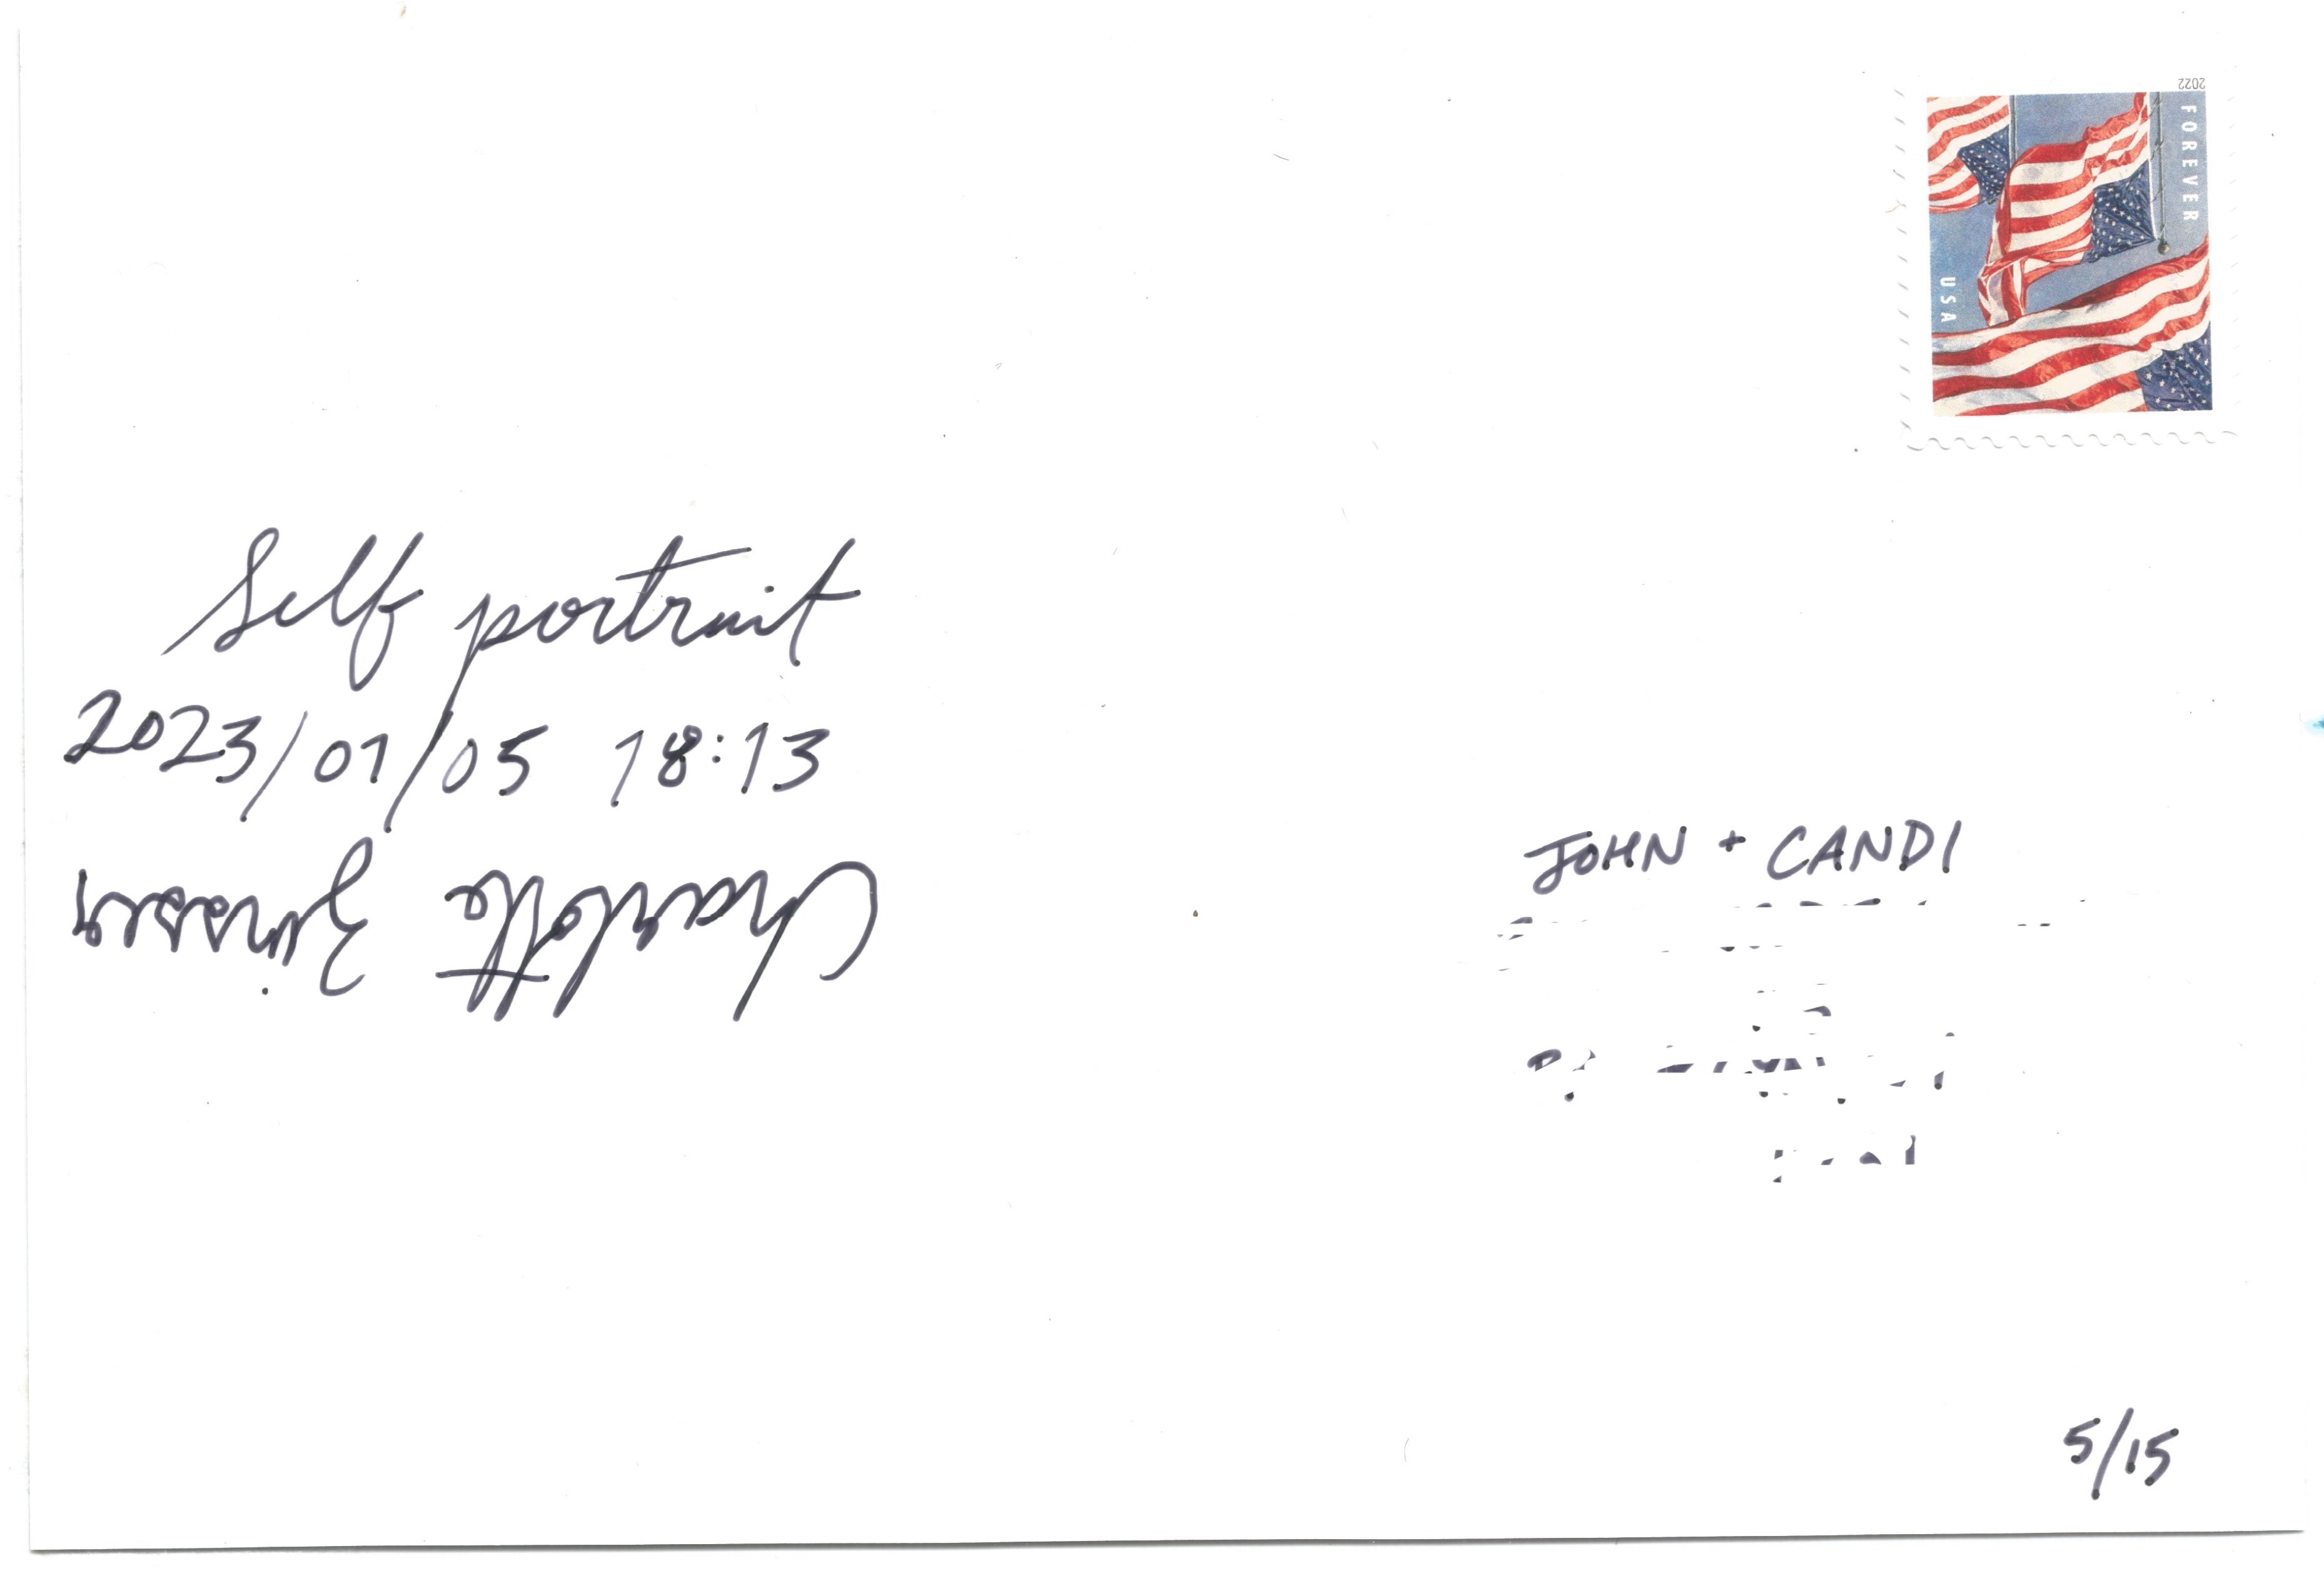 2022
FOREVER
USA
Self portrait
2023/01/05 18:13
Charlotte
JOHN + CANDI
5/15